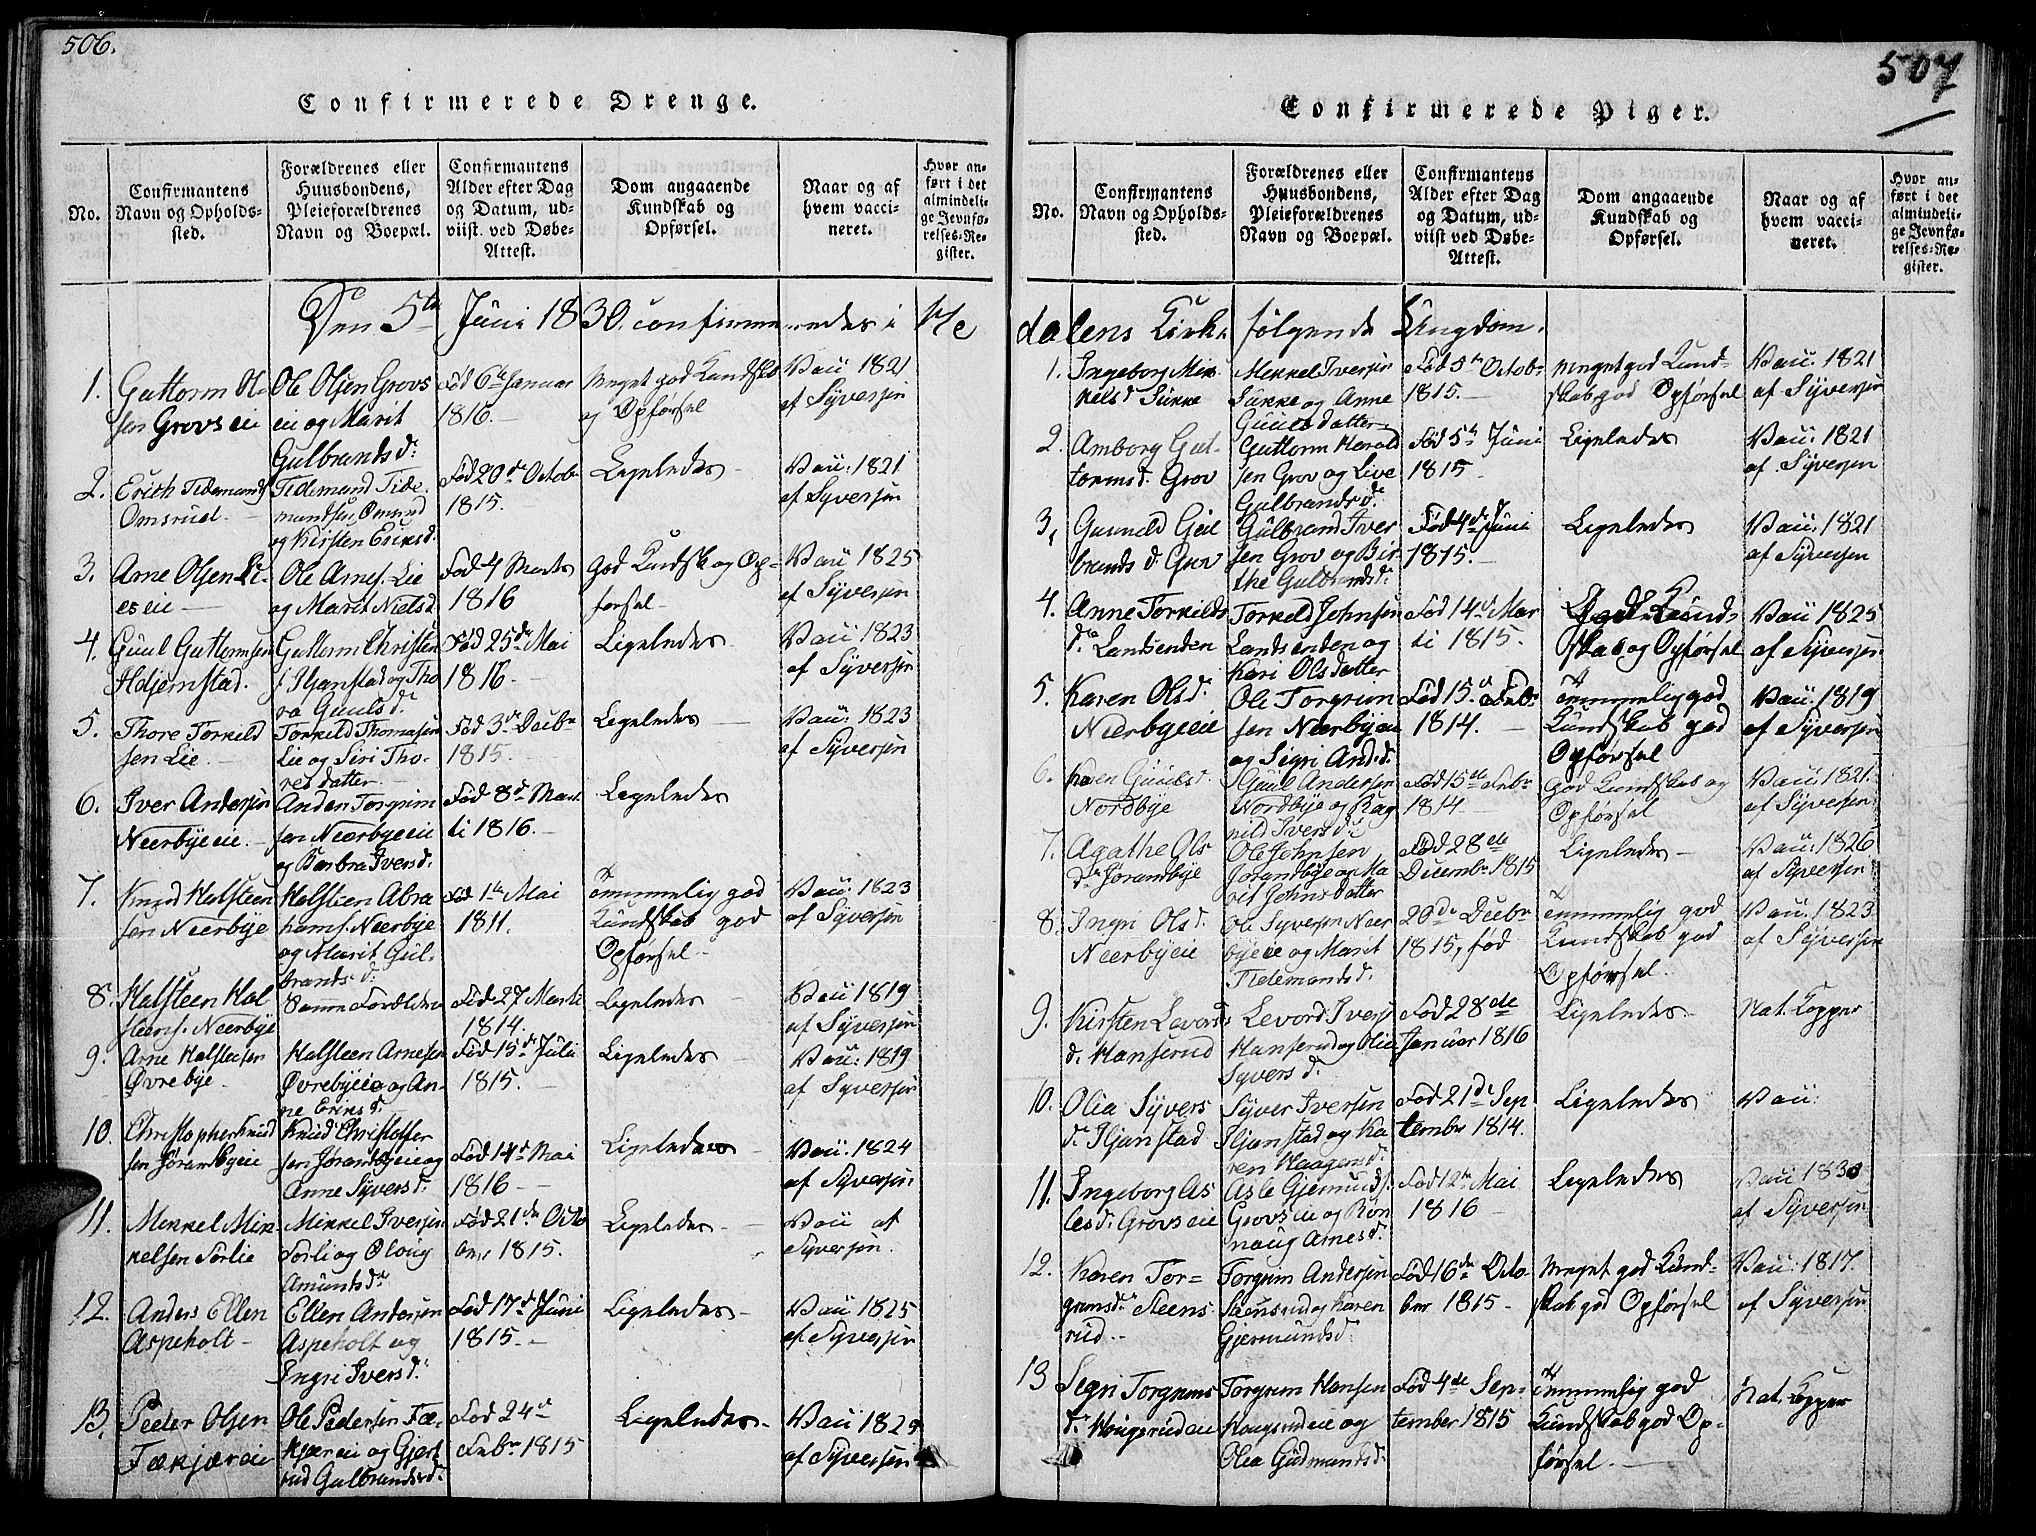 506.
Confirmerede Drenge.
No.
Confirmantens
Navn og Opholds-
sted.
Forældrenes eller
Huusbondens,
Pleieforældrenes
Navn og Boepæl.
Confirmantens
Alder efter Dag
og Datum, ud-
viist ved Døbe-
Attest.
Dom angaaende
Kundskab og
Opførsel.
Naar og af
hvem vacci-
neret.
Hvor an-
ført i det
almindeli-
ge Jevnfø-
relses-Re-
gister.
Den 5te Juni 1830 confirmeredes i He
1.
Guttorm Ol-
sen Grovs eie
Ole Olsen Grovs
eie og Marit
Gulbrandsd:
Fød 6te Januar
1816.
Meget god Kundsk
og Opførsel
Vac: 1821
af Syversen
2.
Erich Tidemands
Omsrud.
Tidemand Tide-
mandsen Omsrud
og Kirsten Eriksd.
Fød 20de Octob
1815.
Ligeledes
Vac: 1821
af Syversen
3.
Arne Olsen Li-
es eie
Ole Arnes. Lie
og Marit Nielsd
Fød 4 Marts
1816
God Kundsk og Op-
førsel
Vac 1825
af Syversen
4.
Guul Guttormsen
Hdjemstad.
Guttorm Christen
s. Iljanstad og Tho
ra Guulsd:
Fød 25de Mai
1816.
Ligeledes
Vac 1823
af Syversen
5.
Thore Torkild
sen Lie
Torkild Thomassen
Lie og Siri Tho-
resdatter
Fød 3de Decbr
1815.
Ligeledes
Vac: 1823
af Syversen
6.
Iver Andersen
Neerbyeeie.
Anders Torgrim
sen Neerbyeeie
og Barbra Iversd:
Fød 8d Mar
ti 1816.
Ligeledes
7.
Knud Halsteen
sen Neerbye
Halsteen Abra
hams. Neerbye
og Marit Gul-
brandsd:
Fød 1te Mai
1811.
Temmelig god
Kundskab god
Opførsel
Vac: 1823
af Syversen
8.
Halsteen Hal
steens. Neerbye
Samme Forældre
Fød 27 Marti
1814.
Ligeledes
Vac 1819
af Syversen
9.
Arne Halsteensen
Øvrebye
Halsteen Arnesen
Øvrebyeeie og An-
ne Eriksd:
Fød 15de Juli
1815.
Ligeledes
Vac: 1819
af Syversen
10.
Christopher Knud
sen Jørandbyeeie
Knud Christoffer
sen Jørandbyeeie og
Anne Syversd:
Fød 14d Mai
1816
Ligeledes
Vac: 1824
af Syversen
11.
Mekkel Mik-
kelsen Sørlie
Mikkel Iversen
Sørli og Oloug
Amundsd:
Fød 21de Octo
ber 1815.
Ligeledes
Vac af
Syversen.
12.
Anders Ellen
Aspeholt
Ellen Andersen
Aspeholt og
Ingri Iversd:
Fød 17d Juni
1815.
Ligeledes
Vac 1825
af Syversen
13.
Peder Olsen
Fækjæreie
Ole Pedersen Fæ-
kjæreie og Gjert
rud Gulbrandsd:
Fød 24d
Febr 1815
Ligeledes
Vac 1829
af Syversen
507
Confirmerede Piger.
No.
Confirmantens
Navn og Opholds-
sted.
Forældrenes eller
Huusbondens,
Pleieforældrenes
Navn og Boepæl.
Confirmantens
Alder efter Dag
og Datum, ud-
viist ved Døbe-
Attest.
Dom angaaende
Kundskab og
Opførsel.
Naar og af
hvem vacci-
neret.
Hvor an-
ført i det
almindeli-
ge Jevnfø-
relses-Re-
gister.
dalens Kirke følgende Ungdom.
1.
Ingeborg Mik-
kelsd Sukke
Mekkel Iversen
Sukke og Anne
Guulsdatter
Fød 5te Octob
1815.
Meget god Kund-
skab god Opførsel
Vac: 1821
af Syversen
2.
Amborg Gut-
tormsd: Grov
Guttorm Harald
sen Grov og Live
Gulbrandsd:
Fød 5te Juni
1815
Ligeledes
Vac: 1821
af Syversen
3.
Gunild Gul
brandsd. Grov
Gulbrand Iver
sen Grov og Bir
the Gulbrandsd:
Fød 4de Juni
1815.
Ligeledes
Vac: 1821
af Syversen
4.
Anne Torkilds
d: Landsenden
Torkild Johnsen
Landsenden og
Kari Olsdatter
Fød 14d Mar
ti 1815.
God Kund-
skab og Opførsel
Vac 1825
af Syversen
5.
Karen Olsd.
Neerbyeeie
Ole Torgrim
sen Neerbyeeie
og Sigri And.d.
Fød 15d Feb:
1814.
Temmelig god
Kundskab god
Opførsel
Vac: 1819
af Syversen
6.
Karen Guulsd.
Nordbye
Guul Andersen
Nordbye og Rag
nild Iversd:
Fød 15de Febr
1814
God Kundskab og
Opførsel
Vac: 1821
af Syversen
7.
Agathe Ols
d: Jørandbye
Ole Johnsen
Jørandbye og Ma
rit Johnsdatter
Fød 28de
Decembr 1815
Ligeledes
Vac: 1826
af Syversen
8.
Ingri Olsd.
Neerbyeie
Ole Syversen Neer
byeeie og Marit
Tidemandsd.
20de Decbr
1815, fød
Temmelig god
Kundskab god
Opførsel.
Vac: 1823
af Syversen
9.
Kirsten Levords
d. Hanserud
Levord Ivers
Hanserud og Olia
Syversd:
Fød 28de
Januar 1816
Ligeledes
Nat. Kopper
10.
Olia Syvers
d: Iljanstad
Syver Iversen
Iljanstad og Ka
ren Haagensd:
Fød 21de Sep
tember 1814.
Ligeledes
Vac:
11.
Ingeborg As
lesd. Grovs eie
Asle Gjermunds.
Grovs eie og Ron
naug Arnesd:
Fød 12te Mai
1816
Ligeledes
Vac 1830
af Syversen
12.
Karen Tor-
grimsd: Steens
rud
Torgrim Andersen
Steensrud og Karen
Gjermundsd:
Fød 16de Octo-
ber 1815
Meget god Kund-
skab god Opførsel
Vac: 1817.
af Syversen
13
Segri Torgrims
d: Hougsrudeie
Torgrim Hansen
Hougsrudeie og
Olia Gudmundsd:
Fød 4de Sep-
tember 1815
Temmelig god
Kundskab god Op-
førsel.
Nat. Kopper